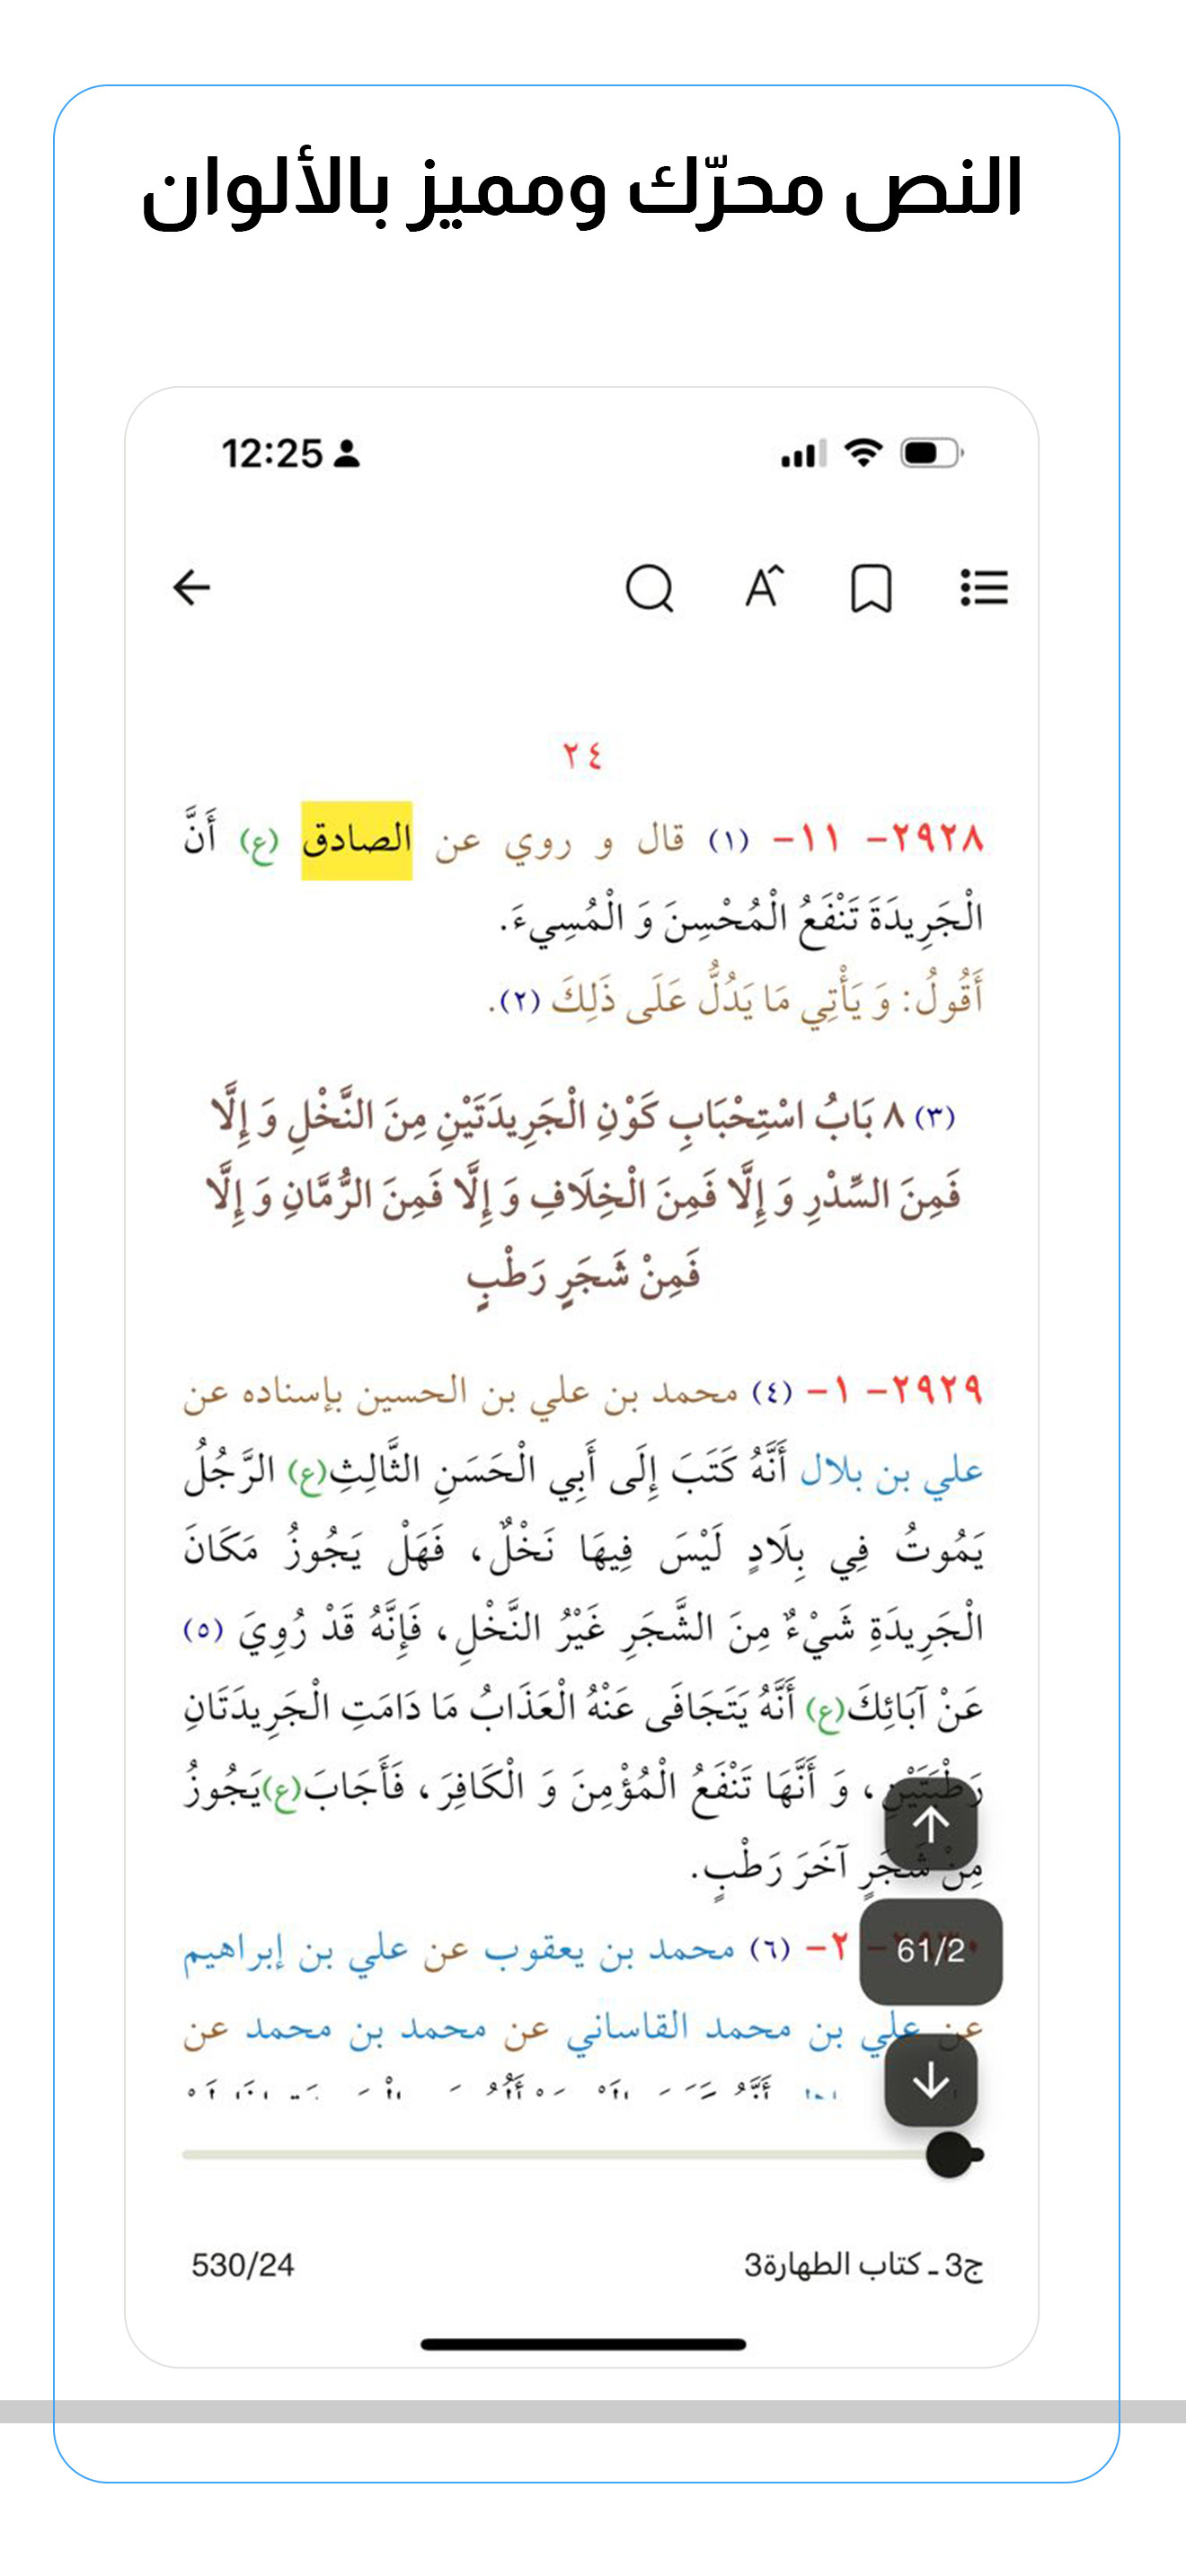 النص محرّك ومميز بالألوان
12:25
٢٤
٢٩٢٨- ١١- (١) قال و روي عن الصادق (ع) أَنَّ
الْجَرِيدَةَ تَنْفَعُ الْمُحْسِنَ وَ الْمُسِيءَ.
أَقُولُ: وَ يَأْتِي مَا يَدُلُّ عَلَى ذَلِكَ (٢).
(٣) ٨ بَابُ اسْتِحْبَابِ كَوْنِ الْجَرِيدَتَيْنِ مِنَ النَّخْلِ وَ إِلَّا
فَمِنَ السِّدْرِ وَ إِلَّا فَمِنَ الْخِلَافِ وَ إِلَّا فَمِنَ الرُّمَّانِ وَ إِلَّا
فَمِنْ شَجَرٍ رَطْبٍ
٢٩٢٩- ١- (٤) محمد بن علي بن الحسين بإسناده عن
علي بن بلال أَنَّهُ كَتَبَ إِلَى أَبِي الْحَسَنِ الثَّالِثِ(ع) الرَّجُلُ
يَمُوتُ فِي بِلَادٍ لَيْسَ فِيهَا نَخْلٌ، فَهَلْ يَجُوزُ مَكَانَ
الْجَرِيدَةِ شَيْءٌ مِنَ الشَّجَرِ غَيْرُ النَّخْلِ، فَإِنَّهُ قَدْ رُوِيَ (٥)
عَنْ آبَائِكَ(ع) أَنَّهُ يَتَجَافَى عَنْهُ الْعَذَابُ مَا دَامَتِ الْجَرِيدَتَانِ
رَطْبَتَيْنِ، وَ أَنَّهَا تَنْفَعُ الْمُؤْمِنَ وَ الْكَافِرَ، فَأَجَابَ(ع)يَجُوزُ
مِنْ شَجَرٍ آخَرَ رَطْبٍ.
٢- (٦) محمد بن يعقوب عن علي بن إبراهيم
61/2
عن علي بن محمد القاساني عن محمد بن محمد عن
ج3 ـ كتاب الطهارة3
530/24